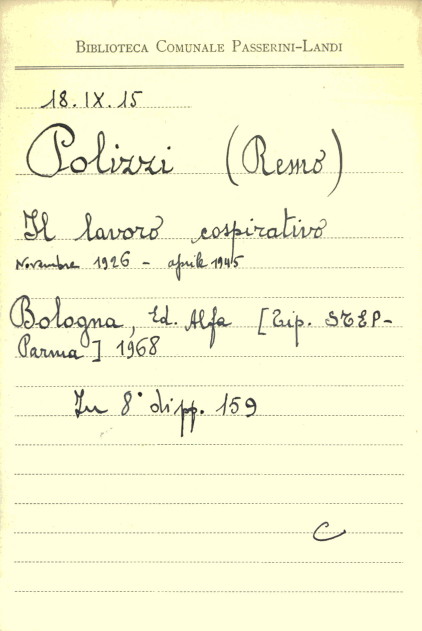 BIBLIOTECA COMUNALE PASSERINI-LANDI
18.IX.15
Polizzi (Remo)
Il lavoro cospirativo
Novembre 1926 - aprile 1945
Bologna, Ed. Alfa [Tip. STEP-
Parma] 1968
In 8° di pp. 159
C